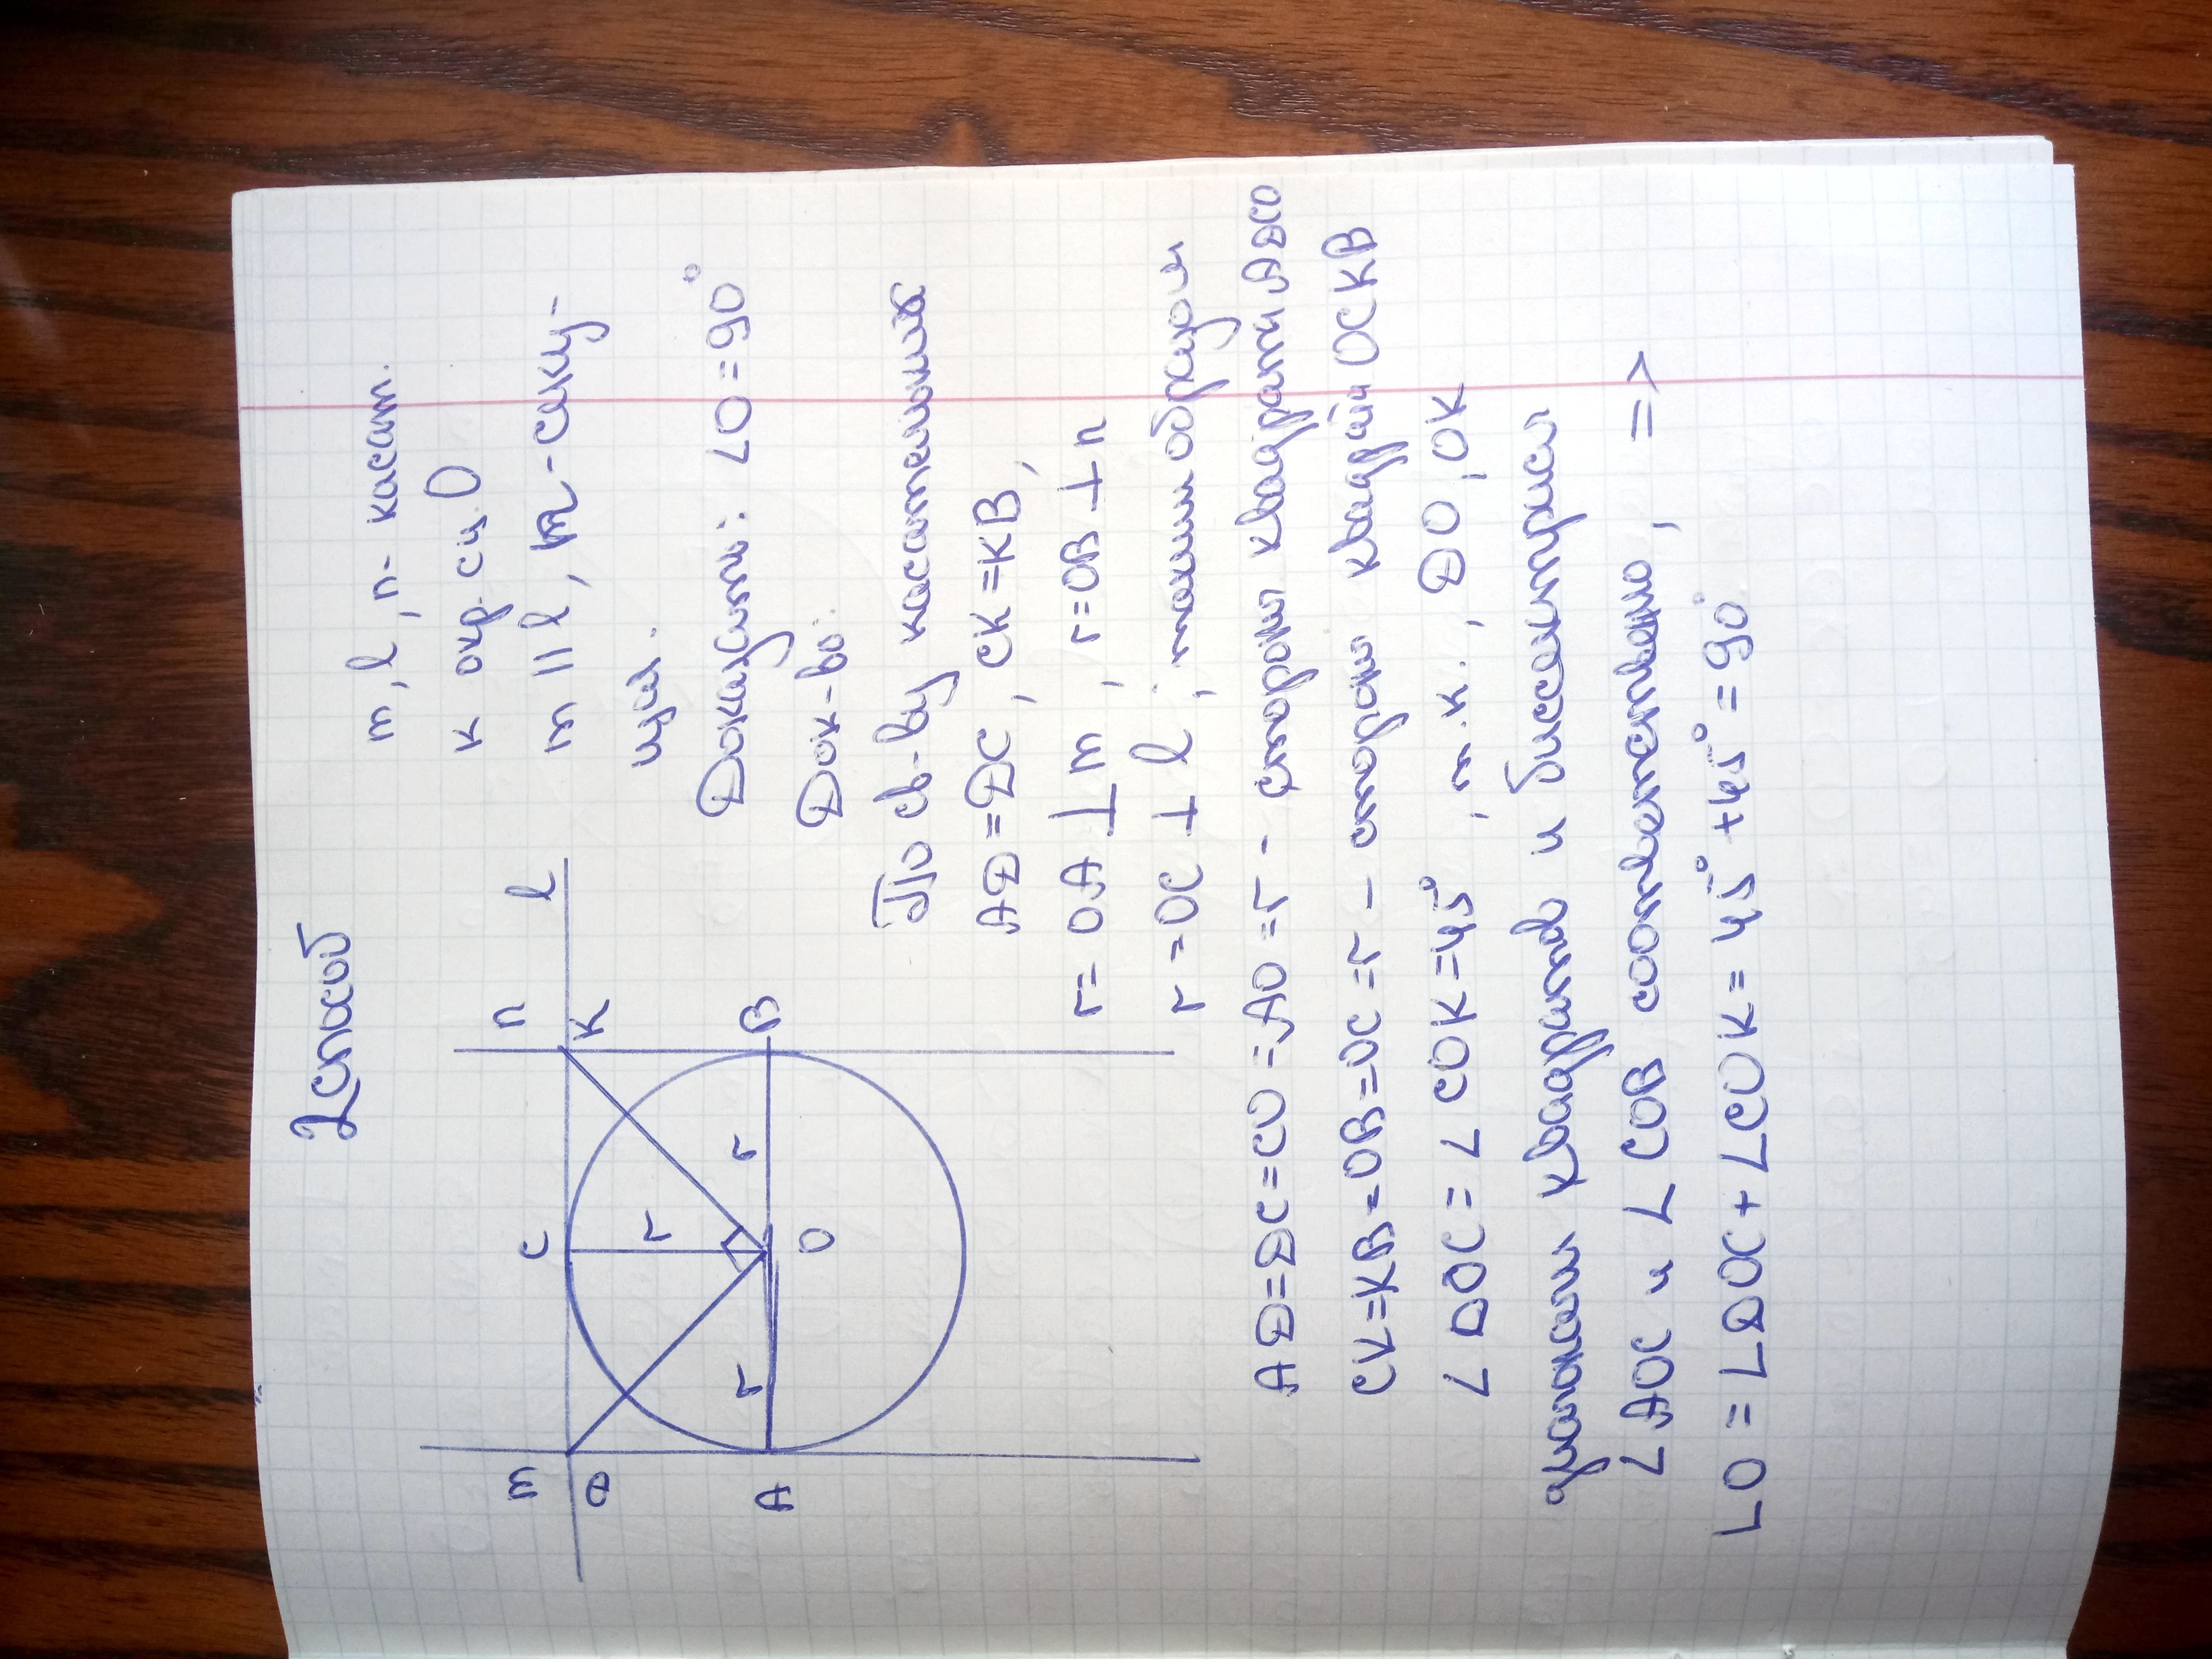 2 способ
m n l
C K
D
r
r r
A O B
m, l, n - касат.
к окр. сц. O
m || l, m - секу-
щая.
Доказать: ∠O = 90°
Док-во:
По св-ву касательных
AD = DC, CK = KB,
r = OA ⊥ m, r = OB ⊥ n
r = OC ⊥ l, таким образом
AD = DC = CO = AO = r - сторон квадрат ADCO
CK = KB = OB = OC = r - сторон квадрат OCKB
∠ DOC = ∠ COK = 45°, т.к., DO, OK
диагонали квадратов и биссектрисы
∠ AOC и ∠ COB соответственно, =>
∠O = ∠DOC + ∠COK = 45° + 45° = 90°